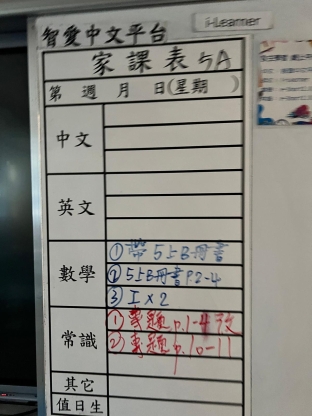 i-Learner
智愛中文平台
家課表 5A
第 週 月 日(星期 )
中文
英文
數學
① 帶 5上B冊書
② 5上B冊書 P.2-4
③ 工 x 2
常識
① 專題 p.1-4 改
② 專題 p.10-11
其它
值日生